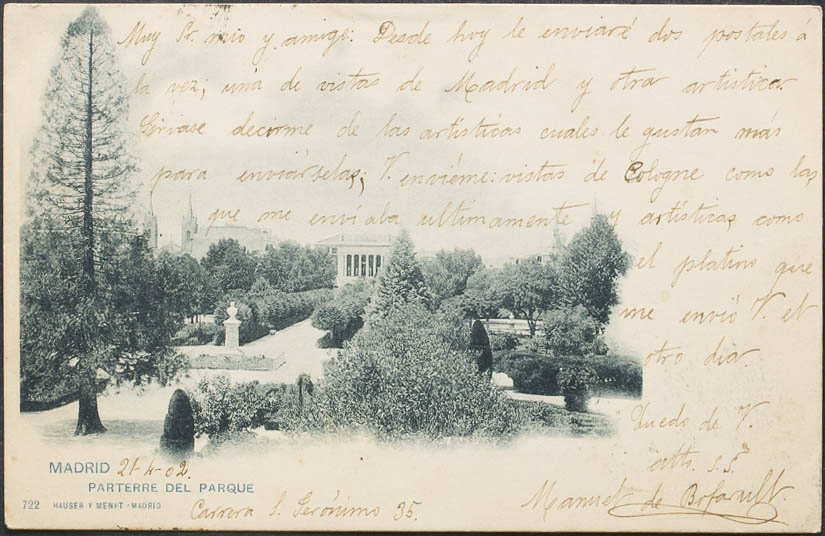 Muy Sr. mio y amigo: Desde hoy le enviaré dos postales á
la vez; una de vistas de Madrid y otra artistica.
Sirvase decirme de las artísticas cuales le gustan más
para enviárselas; V. envíeme: vistas de Cologne como las
que me enviaba ultimamente y artísticas como
el platino que
me envió V. el
otro dia.
Quedo de V.
atto. s.s.
Manuel de Bofarull.
MADRID 21-4-02.
PARTERRE DEL PARQUE
722 HAUSER Y MENET.-MADRID
Carrera S. Gerónimo 35.